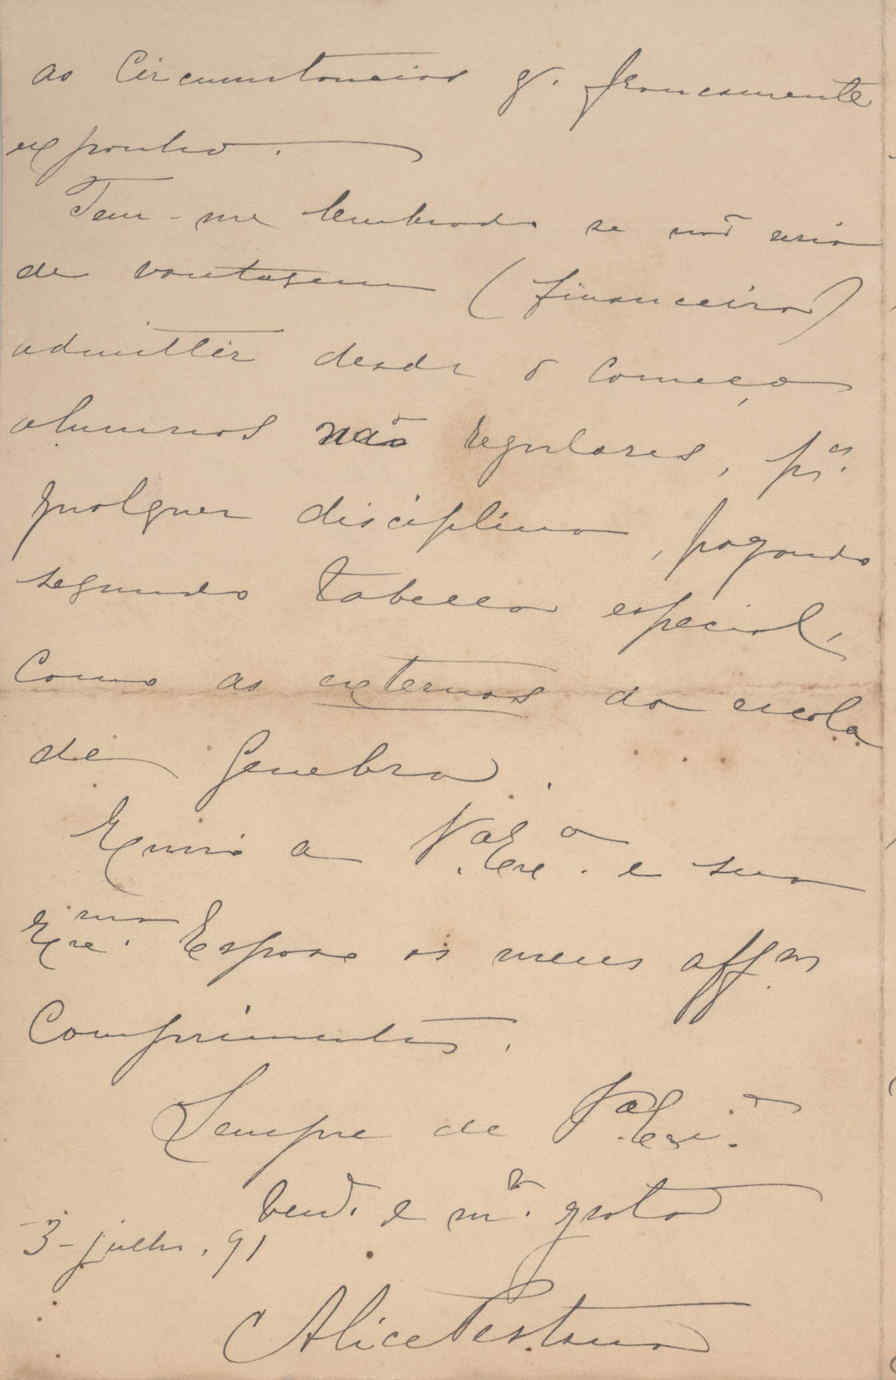 as circumstancias q. francamente
exponho.
Tem-me lembrado se não seria
de vantagem (financeira)
admittir desde o começo
alumnos não regulares, pª.
qualquer disciplina, pagando
segundo tabella especial,
como as externas da escola
de Genebra.
Envio a V.ª Exª. e sua
Exma. Esposa os meus aff.os
comprimentos.
Sempre de V.ª Exª.
Ven.ª e mº. grata
3-julho.91
Alice Pestana